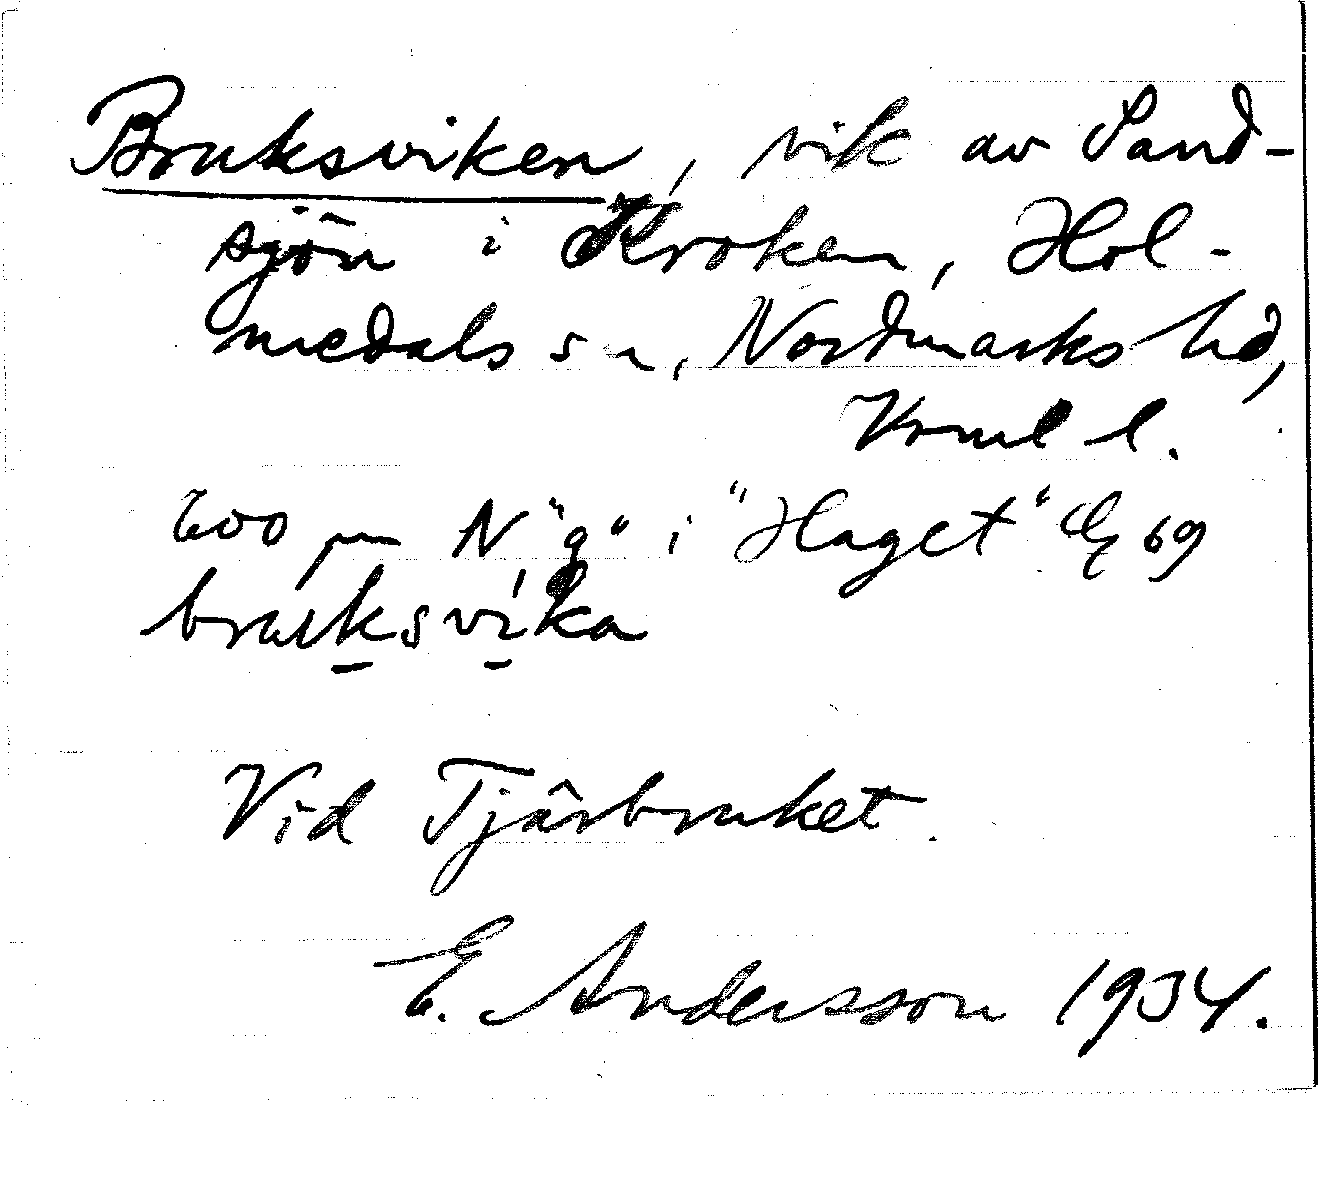 Bruksviken, vik av Sand-
sjön i Kroken, Hol-
medals sn, Nordmarks hd,
Vrml l.
600 m N "g" i "Haget" Ek 69
bruksvika
Vid Tjärbruket.
E. Andersson 1934.